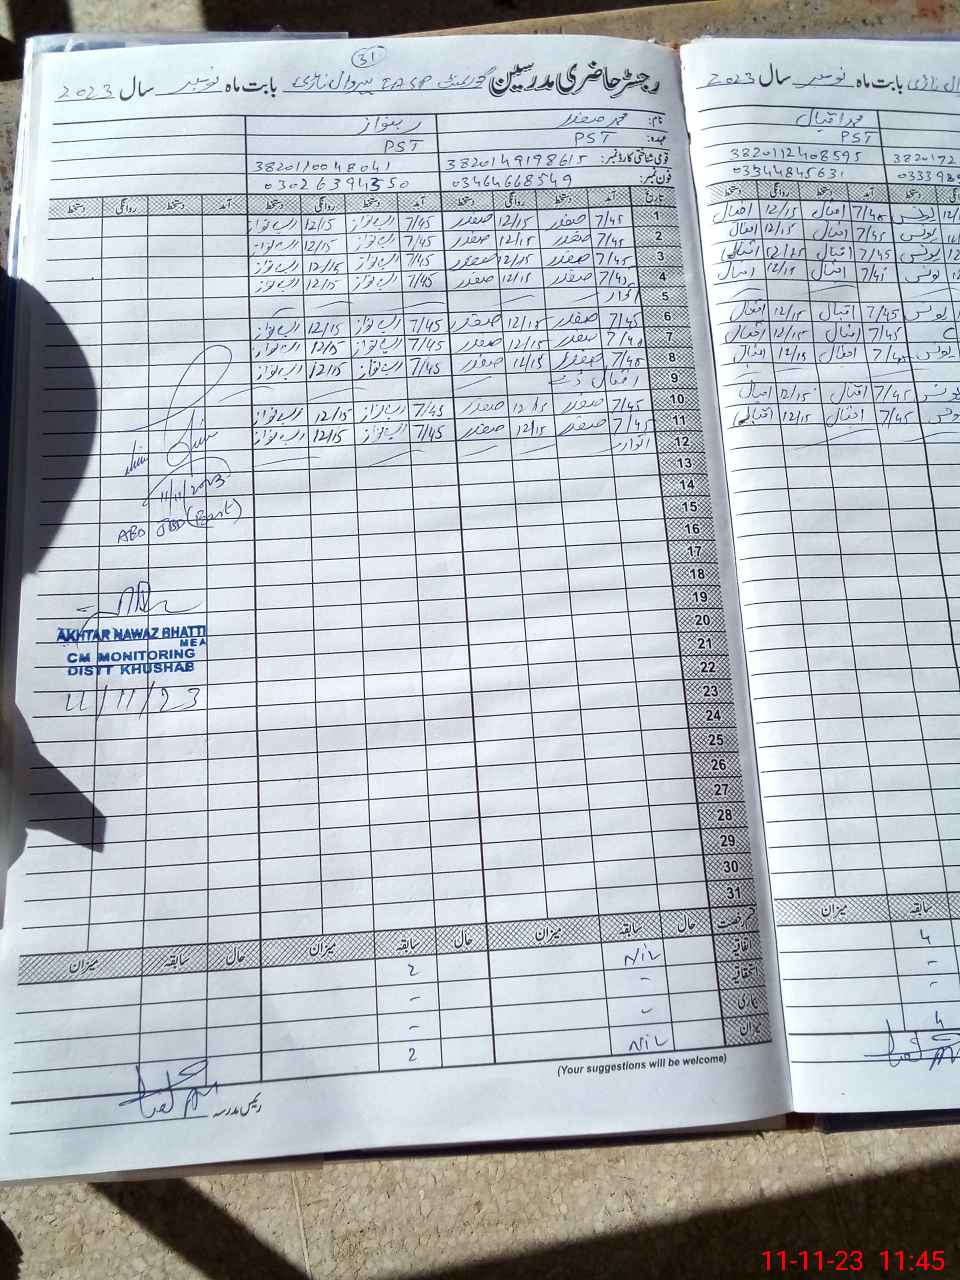 31
رجسٹر حاضری مدرسین گورنمنٹ بابت ماہ نومبر سال 2023
نام: محمد صفدر رب نواز
عہدہ: PST PST
قومی شناختی کارڈ نمبر: 3820149198615 3820110048041
فون نمبر: 03464668549 03026394350
تاریخ آمد دستخط روانگی دستخط آمد دستخط روانگی دستخط آمد دستخط روانگی دستخط
1 7/45 صفدر 12/15 صفدر 7/45 رب نواز 12/15 رب نواز
2 7/45 صفدر 12/15 صفدر 7/45 رب نواز 12/15 رب نواز
3 7/45 صفدر 12/15 صفدر 7/45 رب نواز 12/15 رب نواز
4 7/45 صفدر 12/15 صفدر 7/45 رب نواز 12/15 رب نواز
5 اتوار
6 7/45 صفدر 12/15 صفدر 7/45 رب نواز 12/15 رب نواز
7 7/45 صفدر 12/15 صفدر 7/45 رب نواز 12/15 رب نواز
8 7/45 صفدر 12/15 صفدر 7/45 رب نواز 12/15 رب نواز
9 اقبال ڈے
10 7/45 صفدر 12/15 صفدر 7/45 رب نواز 12/15 رب نواز
11 7/45 صفدر 12/15 صفدر 7/45 رب نواز 12/15 رب نواز
12 اتوار
13
14
15
16
17
18
19
20
21
22
23
24
25
26
27
28
29
30
31
11/11/2023
AKHTAR NAWAZ BHATTI
MEA
CM MONITORING
DISTT KHUSHAB
11/11/23
قسم رخصت حال سابقہ میزان حال سابقہ میزان حال سابقہ میزان
اتفاقیہ NiL 2
استحقاقیہ - -
بیماری - -
میزان NiL 2
(Your suggestions will be welcome)
رئیس مدرسہ
بابت ماہ نومبر سال 2023
محمد اقبال
PST
3820112408595 3820172
03344845631
آمد دستخط روانگی دستخط
7/45 اقبال 12/15 اقبال
7/45 اقبال 12/15 اقبال
7/45 اقبال 12/15 اقبال
7/45 اقبال 12/15 اقبال
7/45 اقبال 12/15 اقبال
7/45 اقبال 12/15 اقبال
7/45 اقبال 12/15 اقبال
7/45 اقبال 12/15 اقبال
7/45 اقبال 12/15 اقبال
سابقہ میزان
4
-
-
4
11-11-23 11:45